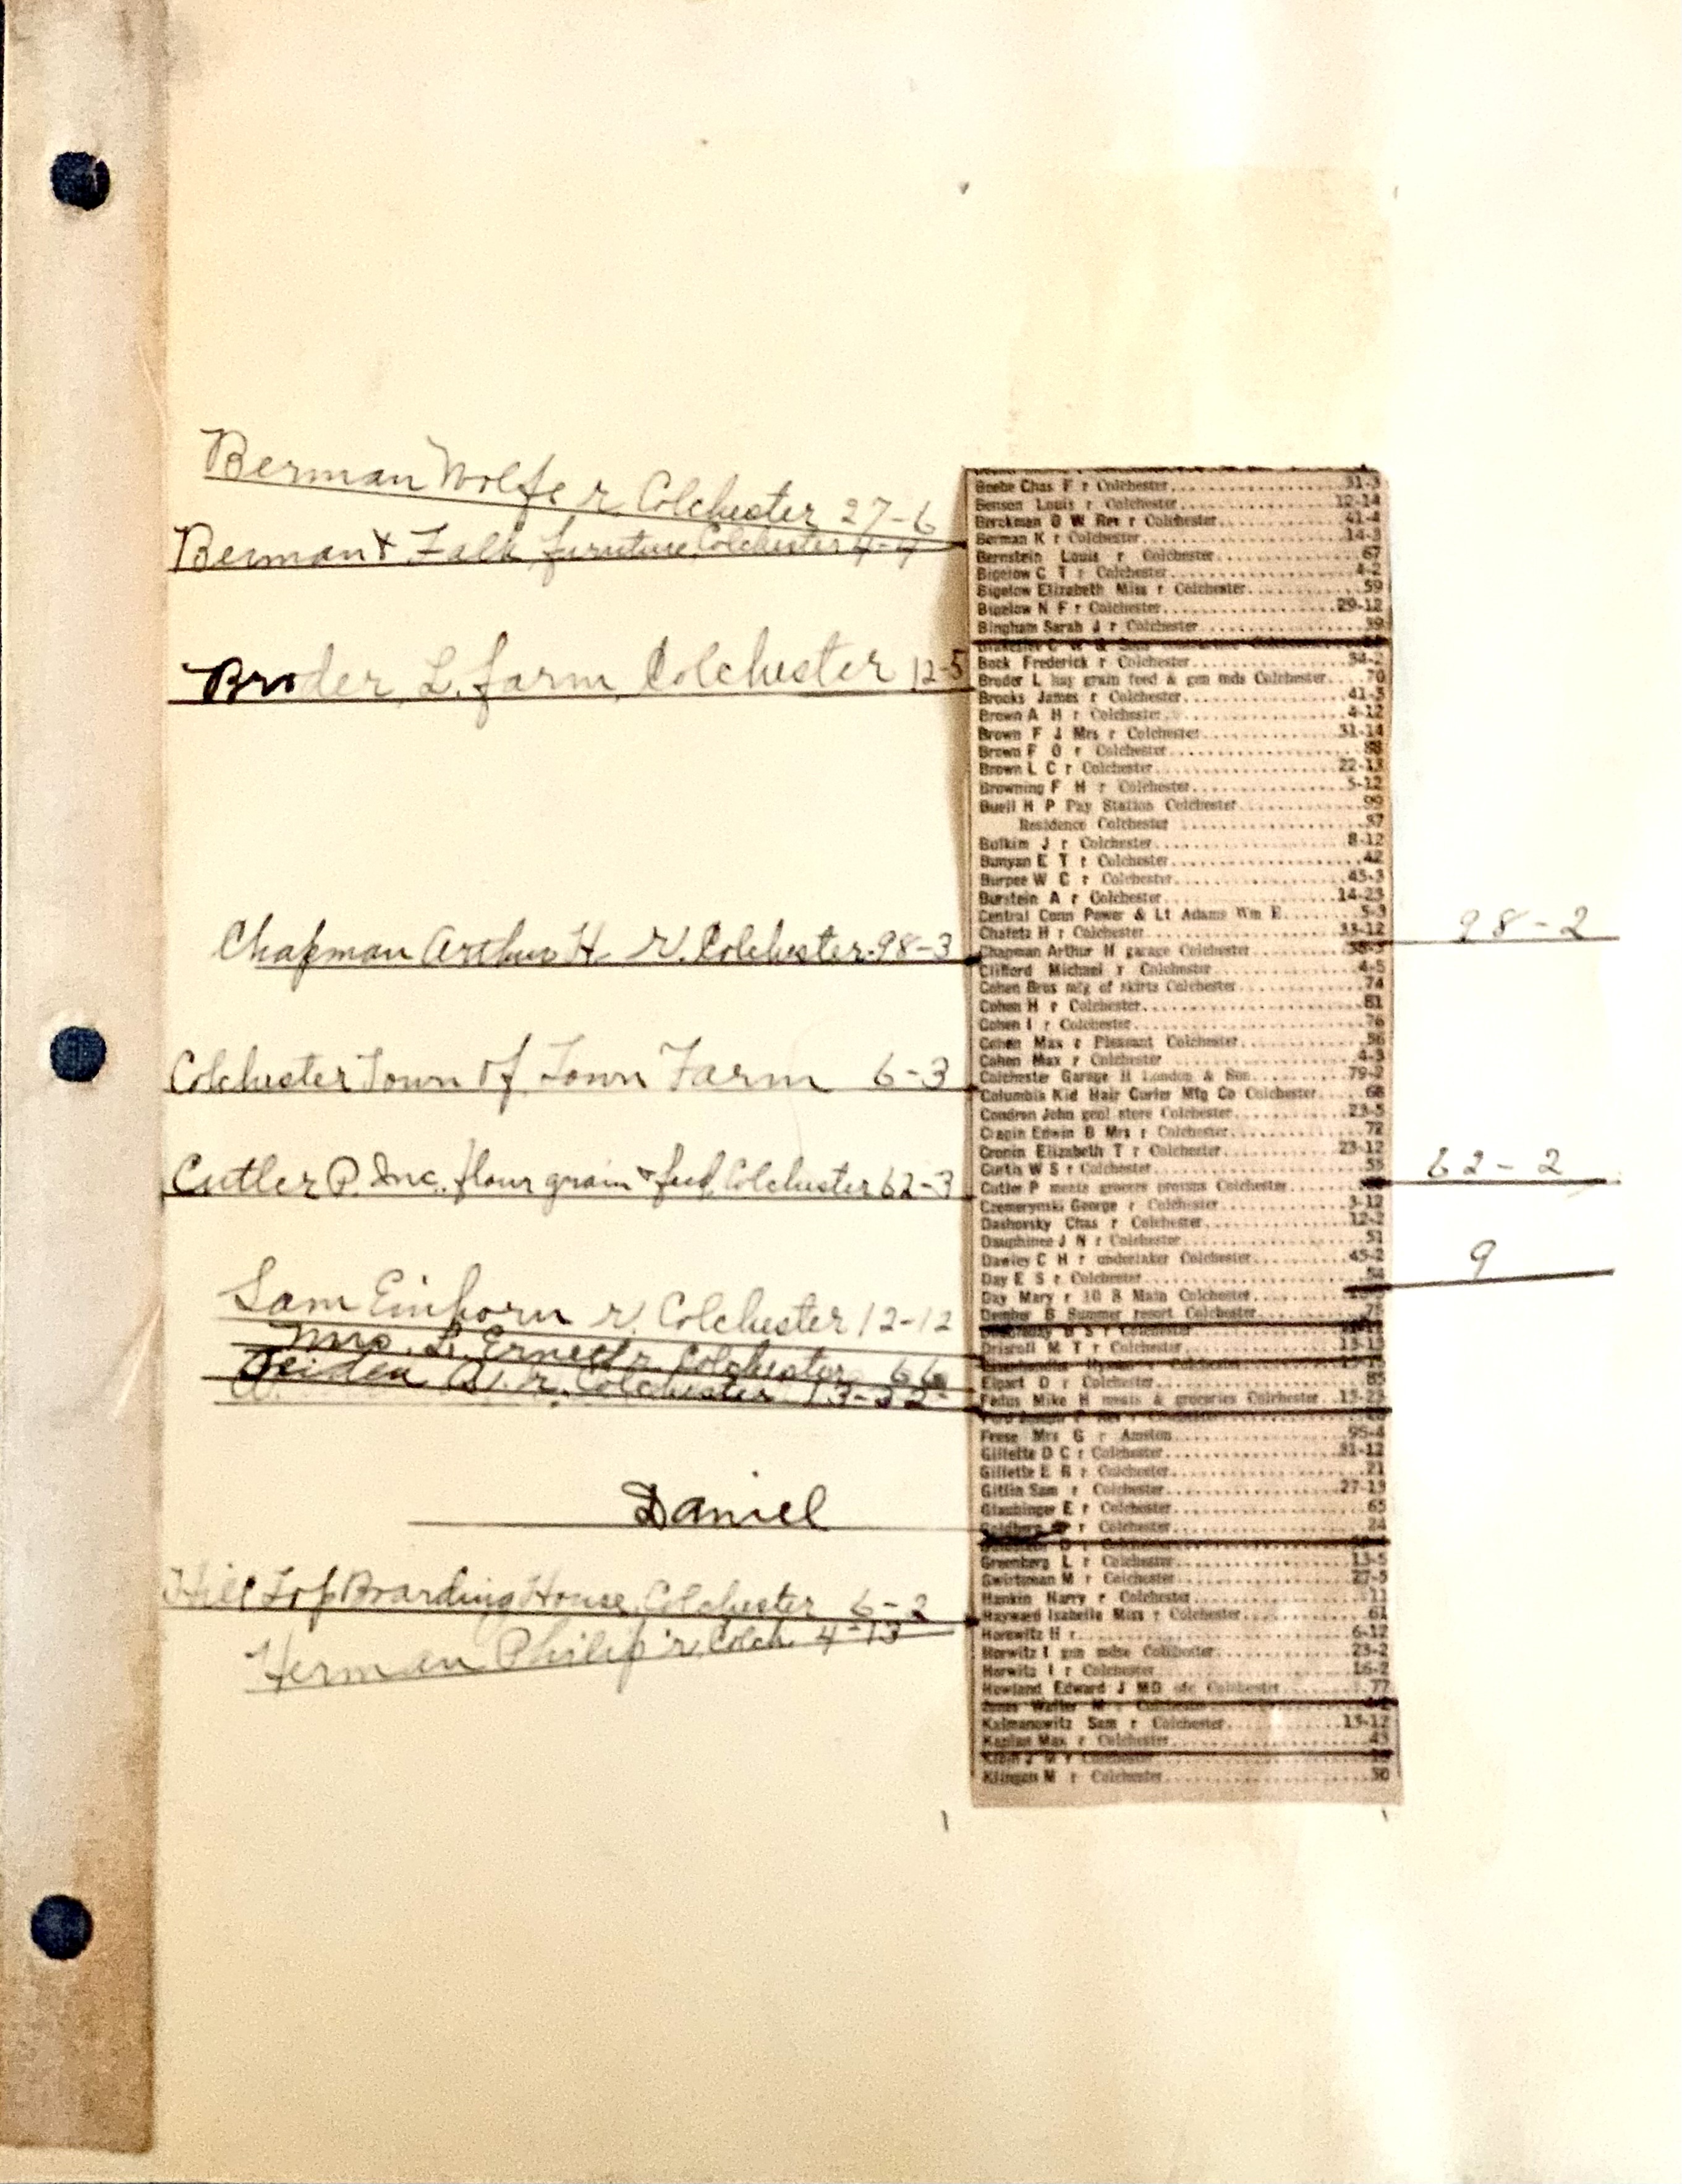 Berman Wolfe r. Colchester 27-6
Berman & Falk, furniture, Colchester 4-4
Broder, L. farm, Colchester 12-5
Chapman Arthur H. r. Colchester 98-3
Colchester Town of Town Farm 6-3
Cutler P. Inc. flour grain & feed, Colchester 62-3
Sam Einhorn r. Colchester 12-12
Mrs. L. Ernest r. Colchester 66
A. r. Colchester
Daniel
Hill Top Boarding House, Colchester 6-2
Herman Philip r. Colch. 4-13
Beebe Chas F r Colchester 31-3
Benson Louis r Colchester 12-14
Berckman O W Rev r Colchester 41-4
Berman K r Colchester 14-3
Bernstein Louis r Colchester 67
Bigelow C T r Colchester 4-2
Bigelow Elizabeth Miss r Colchester 59
Bigelow N F r Colchester 29-12
Bingham Sarah J r Colchester 39
C W & Sons
Bock Frederick r Colchester 34-2
Broder L hay grain feed & gen mds Colchester 70
Brooks James r Colchester 41-5
Brown A H r Colchester 4-12
Brown F J Mrs r Colchester 31-14
Brown F O r Colchester 88
Brown L C r Colchester 22-13
Browning F H r Colchester 5-12
Buell H P Pay Station Colchester 99
Residence Colchester 37
Bulkim J r Colchester 8-12
Bunyan E T r Colchester 42
Burpee W C r Colchester 43-3
Burstein A r Colchester 14-23
Central Conn Power & Lt Adams Wm E 5-3
Chafetz H r Colchester 33-12
Chapman Arthur H garage Colchester
Clifford Michael r Colchester 4-5
Cohen Bros mfg of skirts Colchester 74
Cohen H r Colchester 81
Cohen I r Colchester 76
Cohen Max r Pleasant Colchester 36
Cohen Max r Colchester 4-3
Colchester Garage H London & Son 79-2
Columbia Kid Hair Curler Mfg Co Colchester 68
Condren John genl store Colchester 23-5
Cragin Edwin B Mrs r Colchester 72
Cronin Elizabeth T r Colchester 23-12
Curtis W S r Colchester 55
Cutler P meats grocers provsns Colchester
Czemerynski George r Colchester 3-12
Dashovsky Chas r Colchester 12-2
Dauphinee J N r Colchester 51
Dawley C H r undertaker Colchester 45-2
Day E S r Colchester 54
Day Mary r 10 S Main Colchester
Dember B Summer resort Colchester 75
Driscoll M T r Colchester 15-13
Hyman r Colchester
Elgart D r Colchester 85
Fedus Mike H meats & groceries Colchester 15-23
Frese Mrs G r Amston 95-4
Gillette D C r Colchester 31-12
Gillette E R r Colchester 21
Gitlin Sam r Colchester 27-13
Glaubinger E r Colchester 65
Goldberg r Colchester 24
Greenberg L r Colchester 13-5
Gwirtzman M r Colchester 27-5
Hankin Harry r Colchester 11
Hayward Isabelle Miss r Colchester 61
Horowitz H r 6-12
Horwitz I gen mdse Colchester 23-2
Horwitz I r Colchester 16-2
Howland Edward J MD ofc Colchester 77
Jones Walter M r Colchester
Kalmanowitz Sam r Colchester 13-12
Kaplan Max r Colchester 43
Klein J M r Colchester
Klingon M r Colchester 30
98-2
62-2
9